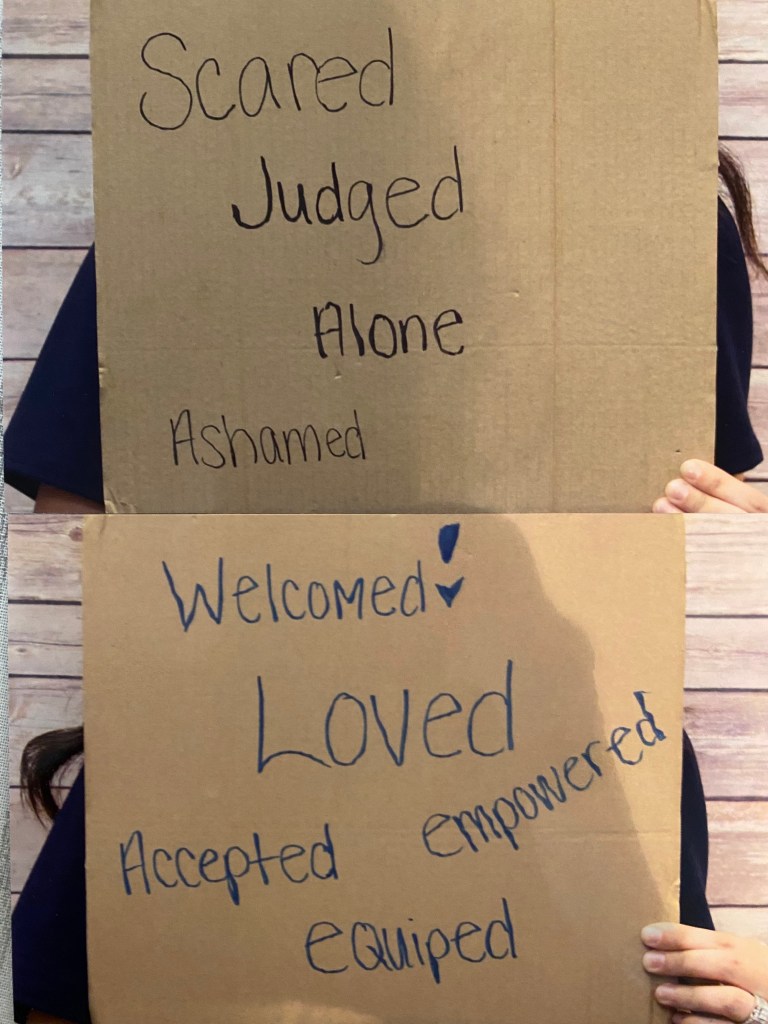 Scared
Judged
Alone
Ashamed
Welcomed!
Loved
empowered
Accepted
equiped